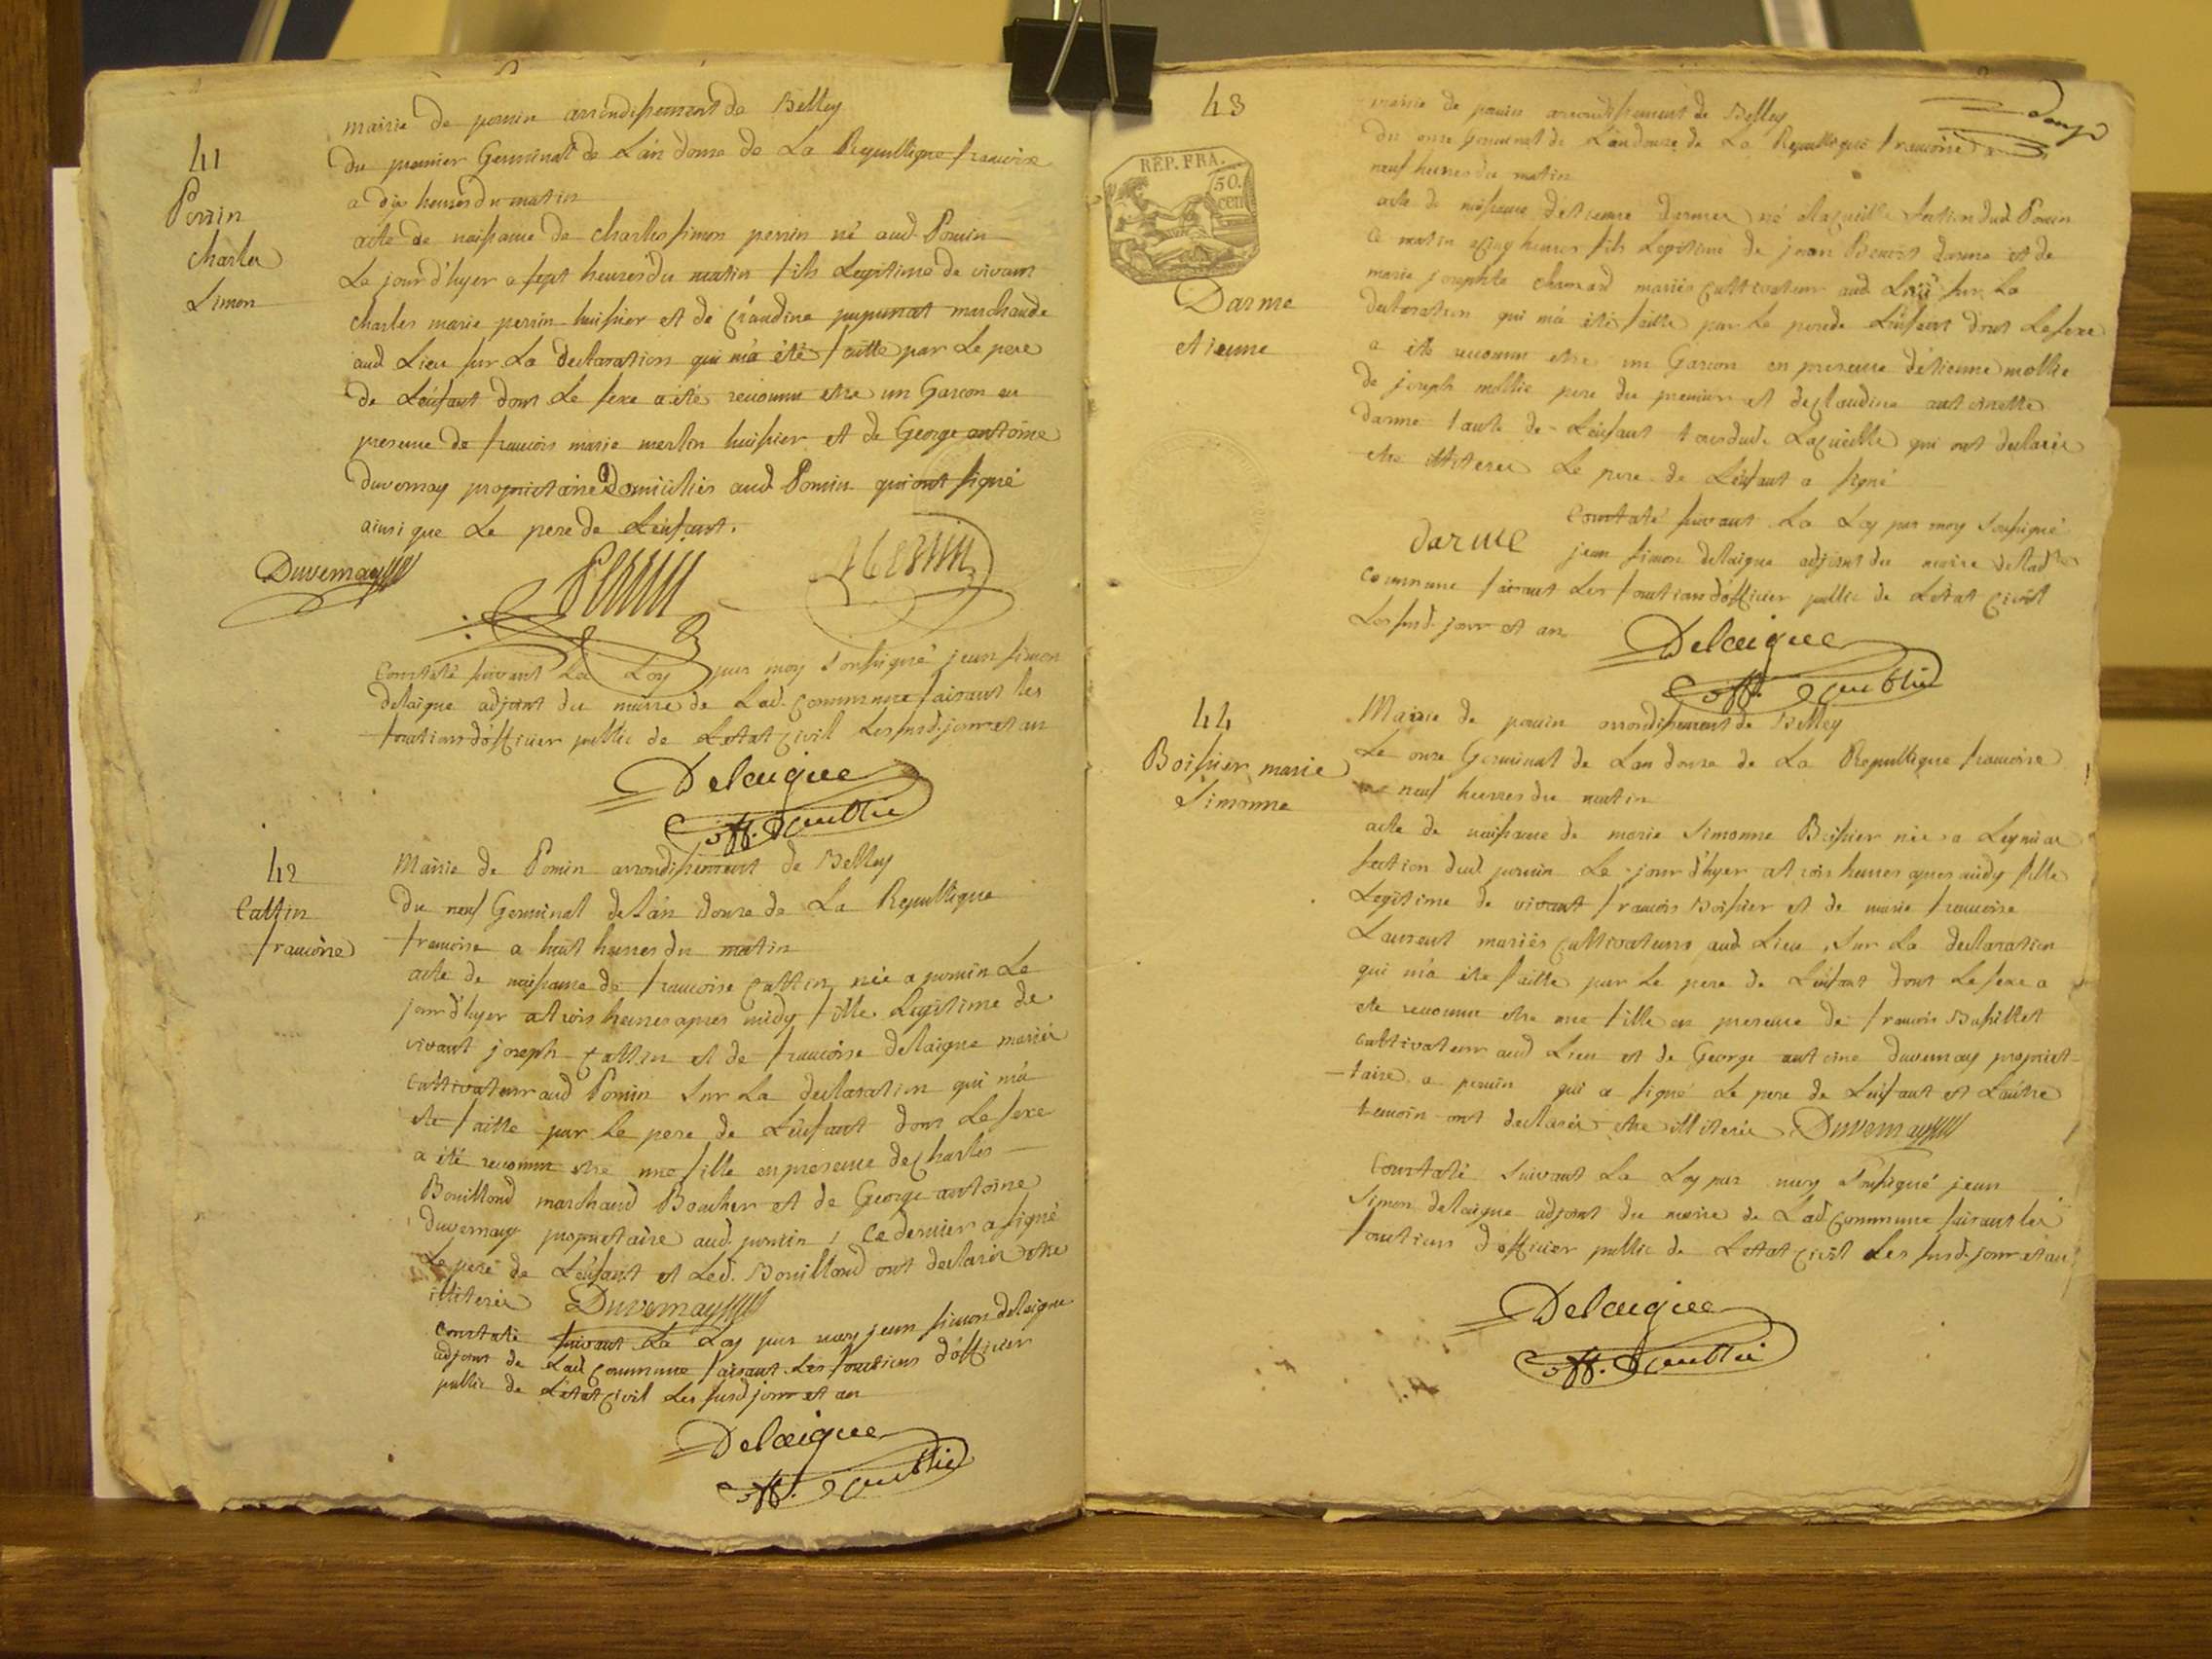 41
Perrin
charles
Simon
mairie de poncin arrondissement de Belley
du premier Germinal de L'an douze de La Republique francoise
a dix heures du matin
acte de naissance de charles simon perrin né aud. Poncin
Le jour d'hyer a sept heures du matin fils Legitime de vivant
charles marie perrin huissier et de claudine pupunat marchande
aud Lieu sur La declaration qui m'a été faitte par Le pere
de L'enfant dont Le sexe a été reconnu etre un Garcon en
presence de francois marie merlin huissier et de George antoine
duvernay proprietaire Domiciliés aud Poncin qui ont signé
ainsi que Le pere de L'enfant.
Duvernay Perrin Merlin
Constaté suivant La Loy par moy soussigné jean simon
delaigue adjoint du maire de Lad. commune faisant les
fonctions d'officier public de L'etat civil Les susd. jour et an
Delaigue
off. public
42
Cattin
francoise
Mairie de Poncin arrondissement de Belley
du neuf Germinal de L'an douze de La Republique
francoise a huit heures du matin
acte de naissance de francoise Cattin née a poncin Le
jour d'hyer a trois heures apres midy fille Legitime de
vivant joseph Cattin et de francoise delaigue mariés
cultivateurs aud Poncin sur La declaration qui m'a
ete faitte par Le pere de L'enfant dont Le sexe
a été reconnu etre une fille en presence de charles
Bouilloud marchand Boucher et de George antoine
duvernay proprietaire aud. poncin, Ce dernier a signé
Le pere de L'enfant et Led. Bouilloud ont declarés etre
illiterés Duvernay
Constaté suivant La Loy par moy jean simon delaigue
adjoint de Lad. commune faisant Les fonctions d'officier
public de L'etat civil Les susd jour et an
Delaigue
off. public
43
REP. FRA.
50.
cent
Darme
etienne
mairie de poncin arrondissement de Belley
Du onze Germinal de L'an douze de La Republique francoise a
neuf heures du matin
acte de naissance d'etienne darme né a section dud. Poncin
ce matin a cinq heures fils Legitime de jean Benoit darme et de
marie josephte chanard mariés cultivateurs aud. Lieu sur La
declaration qui m'a été faitte par Le pere de L'enfant dont Le sexe
a été reconnu etre un Garcon en presence d'etienne mollie
de joseph mollie pere du premier et de claudine antoinette
darme tante de L'enfant tous dud. qui ont declarés
etre illiterés Le pere de L'enfant a signé
Constaté suivant La Loy par moy soussigné
darme jean simon delaigue adjoint du maire de lad.
commune faisant Les fonctions d'officier public de L'etat civil
Les susd. jour et an
Delaigue
off. public
44
Boissier marie
Simonne
Mairie de poncin arrondissement de Belley
Le onze Germinal de L'an douze de La Republique francoise
a neuf heures du matin
acte de naissance de marie simonne Boissier née a
section dud. poncin Le jour d'hyer a trois heures apres midy fille
Legitime de vivant francois Boissier et de marie francoise
Laurent mariés cultivateurs aud. Lieu, sur La declaration
qui m'a ete faitte par Le pere de L'enfant dont Le sexe a
ete reconnu etre une fille en presence de francois
cultivateur aud Lieu et de George antoine duvernay propriet-
-taire a poncin qui a signé Le pere de L'enfant et L'autre
temoin ont declarés etre illiterés Duvernay
Constaté suivant La Loy par moy soussigné jean
simon delaigue adjoint du maire de Lad commune faisant les
fonctions d'officier public de L'etat civil Les susd. jour et an
Delaigue
off. public